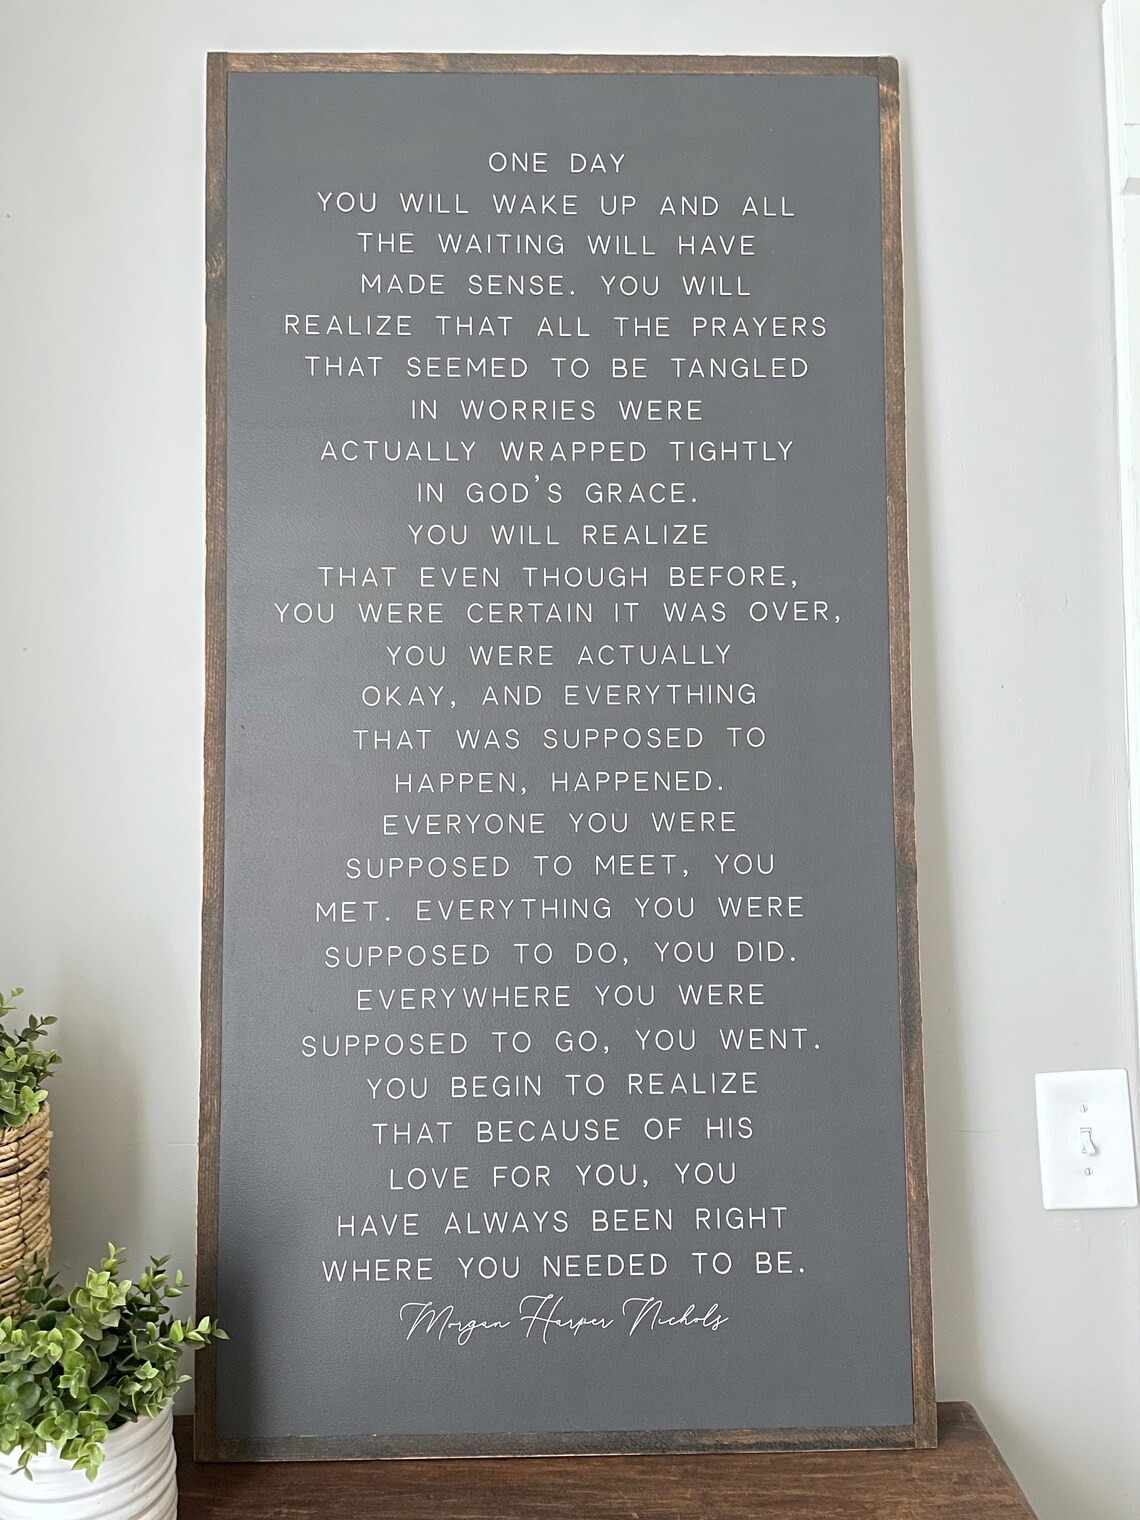 ONE DAY
YOU WILL WAKE UP AND ALL
THE WAITING WILL HAVE
MADE SENSE. YOU WILL
REALIZE THAT ALL THE PRAYERS
THAT SEEMED TO BE TANGLED
IN WORRIES WERE
ACTUALLY WRAPPED TIGHTLY
IN GOD'S GRACE.
YOU WILL REALIZE
THAT EVEN THOUGH BEFORE,
YOU WERE CERTAIN IT WAS OVER,
YOU WERE ACTUALLY
OKAY, AND EVERYTHING
THAT WAS SUPPOSED TO
HAPPEN, HAPPENED.
EVERYONE YOU WERE
SUPPOSED TO MEET, YOU
MET. EVERYTHING YOU WERE
SUPPOSED TO DO, YOU DID.
EVERYWHERE YOU WERE
SUPPOSED TO GO, YOU WENT.
YOU BEGIN TO REALIZE
THAT BECAUSE OF HIS
LOVE FOR YOU, YOU
HAVE ALWAYS BEEN RIGHT
WHERE YOU NEEDED TO BE.
Morgan Harper Nichols